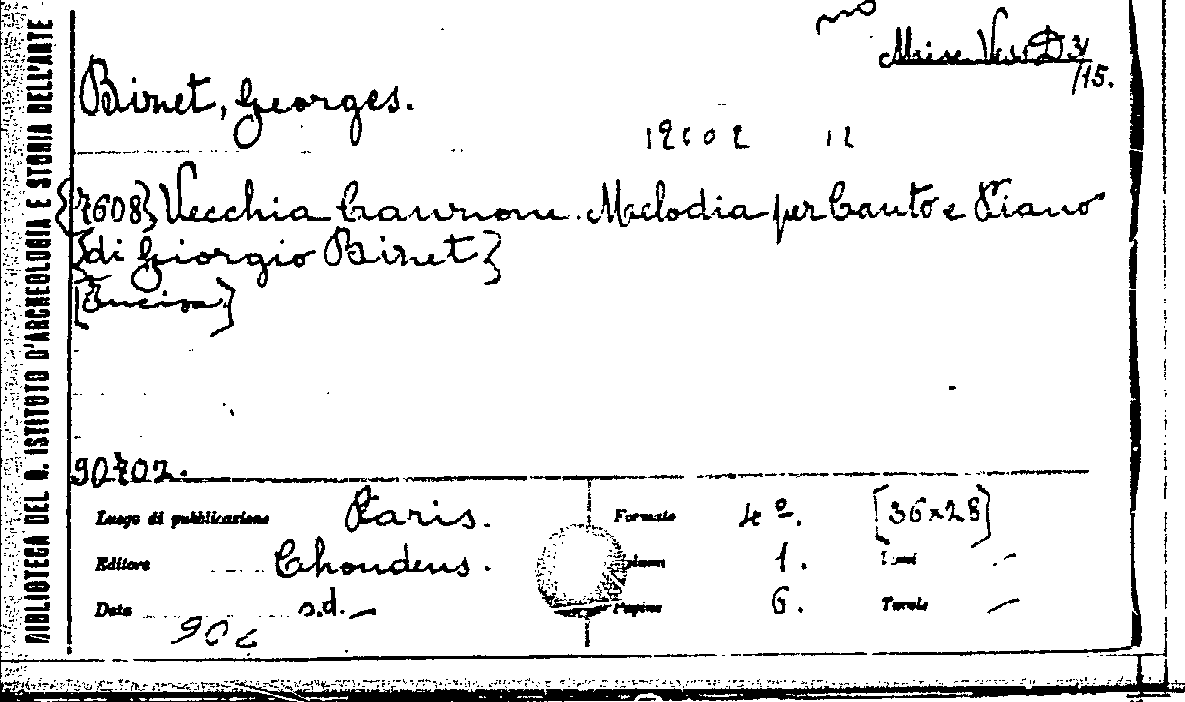 BIBLIOTECA DEL R. ISTITUTO D'ARCHEOLOGIA E STORIA DELL'ARTE
Misc. Vess. D 31
/15.
Binet, Georges.
12602 12
{7608} Vecchia Canzone. Melodia per Canto e Piano
{di Giorgio Binet}
[Incisa]
90702.
Luogo di pubblicazione Paris. Formato 4º. [36×28]
Editore Choudens. 1.
Data s.d. — Pagine 6. Tavole —
906